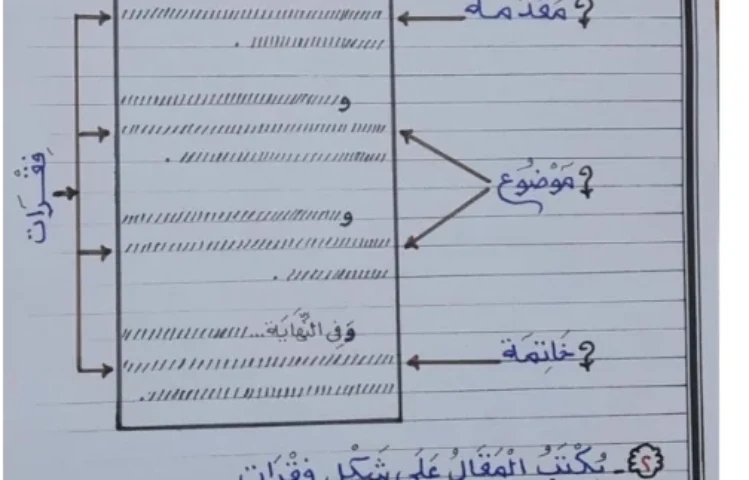 مُقَدِّمَة
و
مَوْضُوع
فِقْرَات
و
وَفِي النِّهَايَة...
خَاتِمَة
٢- يُكْتَبُ الْمَقَالُ عَلَى شَكْلِ فِقْرَاتٍ